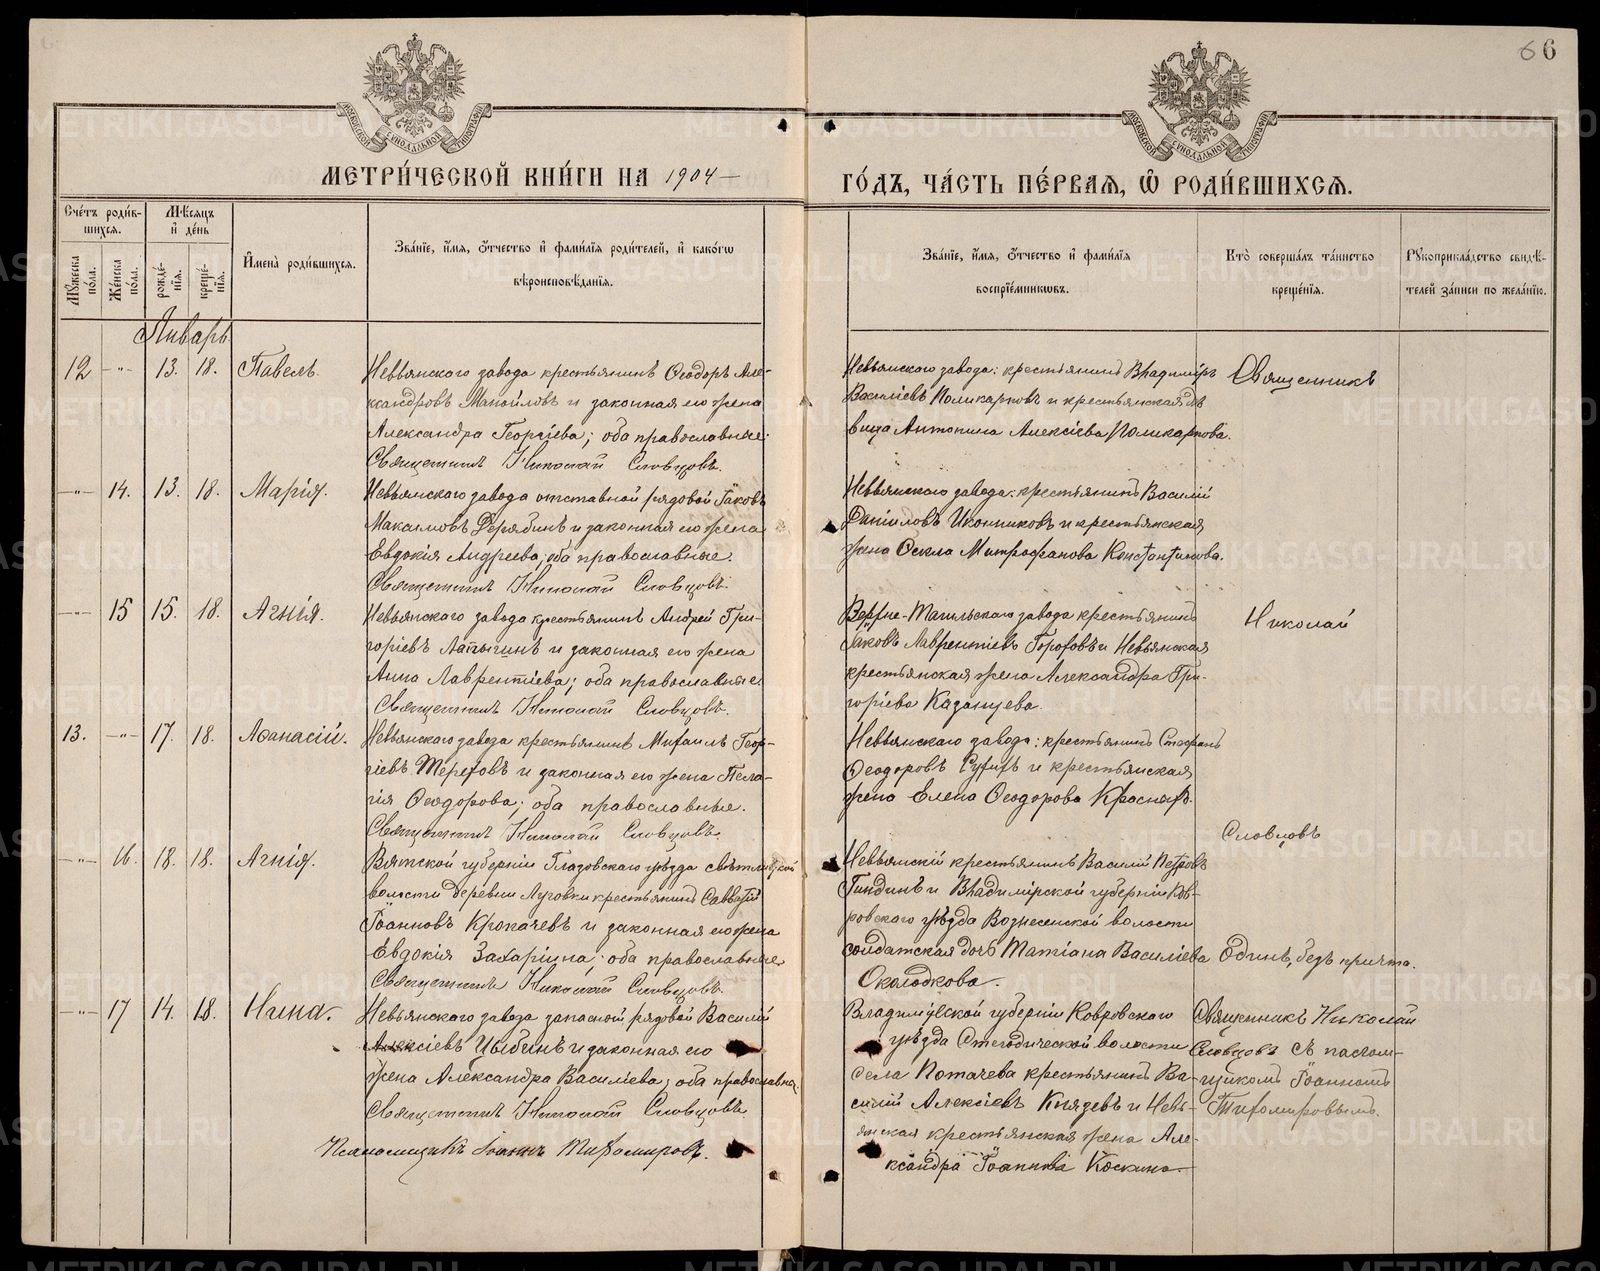 6 6
МОСКОВСКОЙ СѴНОДАЛЬНОЙ ТИПОГРАФІИ
МОСКОВСКОЙ СѴНОДАЛЬНОЙ ТИПОГРАФІИ
МЕТРИ́ЧЕСКОЙ КНИ́ГИ НА 1904 —
ГО́ДЪ, ЧА́СТЬ ПЕ́РВАѦ, Ѡ҆ РОДИ́ВШИХСѦ.
Сче́тъ роди́в-
шихся.
Мѣ́сяцъ
и҆ де́нь
Мꙋ́жеска по́ла.
Же́нска по́ла.
рожде́-
нїѧ.
креще́-
нїѧ.
И҆мена̀ роди́вшихсѧ.
Зва́нїе, и҆́мѧ, ѻ҆́тчество и҆ фами́лїѧ роди́телей, и҆ како́гѡ
вѣроисповѣ́данїѧ.
Зва́нїе, и҆́мѧ, ѻ҆́тчество и҆ фами́лїѧ
воспрїе́мникѡвъ.
Кто̀ соверша́лъ та́инство
креще́нїѧ.
Рꙋкоприкла́дство свидѣ́-
телей за́писи по жела́нїю.
Январь
12 — " — 13. 18. Павелъ.
Невьянскаго завода крестьянинъ Ѳеодоръ Але-
ксандровъ Манойловъ и законная его жена
Александра Георгіева; оба православные.
Священникъ Николай Словцовъ.
Невьянскаго завода: крестьянинъ Владиміръ
Василіевъ Поликарповъ и крестьянская дѣ
вица Антонина Алексіева Поликарпова.
Священникъ
— " — 14. 13. 18. Марія.
Невьянскаго завода отставной рядовой Іаковъ
Максимовъ Дерябинъ и законная его жена
Евдокія Андреева, оба православные.
Священникъ Николай Словцовъ.
Невьянскаго завода: крестьянинъ Василій
Даніиловъ Иконниковъ и крестьянская
жена Ѳекла Митрофанова Константинова.
— " — 15 15. 18. Агнія.
Невьянскаго завода крестьянинъ Андрей Гри-
горіевъ Лапыгинъ и законная его жена
Анна Лаврентіева; оба православные
Священникъ Николай Словцовъ.
Верхне-Тагильскаго завода крестьянинъ
Іаковъ Лаврентіевъ Гороховъ и Невьянская
крестьянская жена Александра Гри-
горіева Казанцева.
Николай
13. — " — 17. 18. Аѳанасій.
Невьянскаго завода крестьянинъ Михаилъ Геор-
гіевъ Тереховъ и законная его жена Пела-
гія Ѳеодорова; оба православные.
Священникъ Николай Словцовъ.
Невьянскаго завода: крестьянинъ Стефанъ
Ѳеодоровъ и крестьянская
жена Елена Ѳеодорова
Словцовъ
— " — 16. 18. 18. Агнія.
Вятской губерніи Глазовскаго уѣзда
волости деревни Луговки крестьянинъ Савватій
Іоанновъ Крокачевъ и законная его жена
Евдокія Захаріина; оба православные
Священникъ Николай Словцовъ.
Невьянскій крестьянинъ Василій Петровъ
Гиндинъ и Владимірской губерніи Ков-
ровскаго уѣзда Вознесенской волости
солдатская дочь Татіана Василіева
Околодкова.
Одинъ, безъ причта.
— " — 17 14. 18. Нина.
Невьянскаго завода запасной рядовой Василій
Алексіевъ Цыбинъ и законная его
жена Александра Василіева; оба православна.
Священникъ Николай Словцовъ.
Псаломщикъ Іоаннъ Тихомировъ.
Владимірской губерніи Ковровскаго
уѣзда волости
села Потачева крестьянинъ Ва-
силій Алексіевъ Князевъ и Невь-
янская крестьянская жена Але-
ксандра Іоаннова Коскина.
Священникъ Николай
Словцовъ съ псалом-
щикомъ Іоанномъ
Тихомировымъ.
METRIKI.GASO-URAL.RU